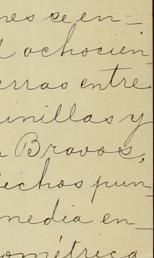 nes se en-
ochocien-
erras entre
unillas y
Bravos,
ichos pun-
media en-
ométrica